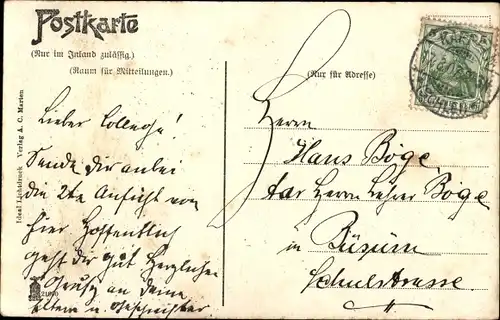 Postkarte
(Nur im Inland zulässig.)
(Raum für Mitteilungen.)
(Nur für Adresse)
Lieber Collega!
Sende dir anbei
die 2te Ansicht von
hier. Hoffentlich
geht dir gut Herzlichen
Gruß an deine
Eltern u Geschwister
Herrn
Hans Böge
Herrn Lehrer Böge
in Büsum
Schulstrasse.
Ideal Lichtdruck Verlag A. C. Marten